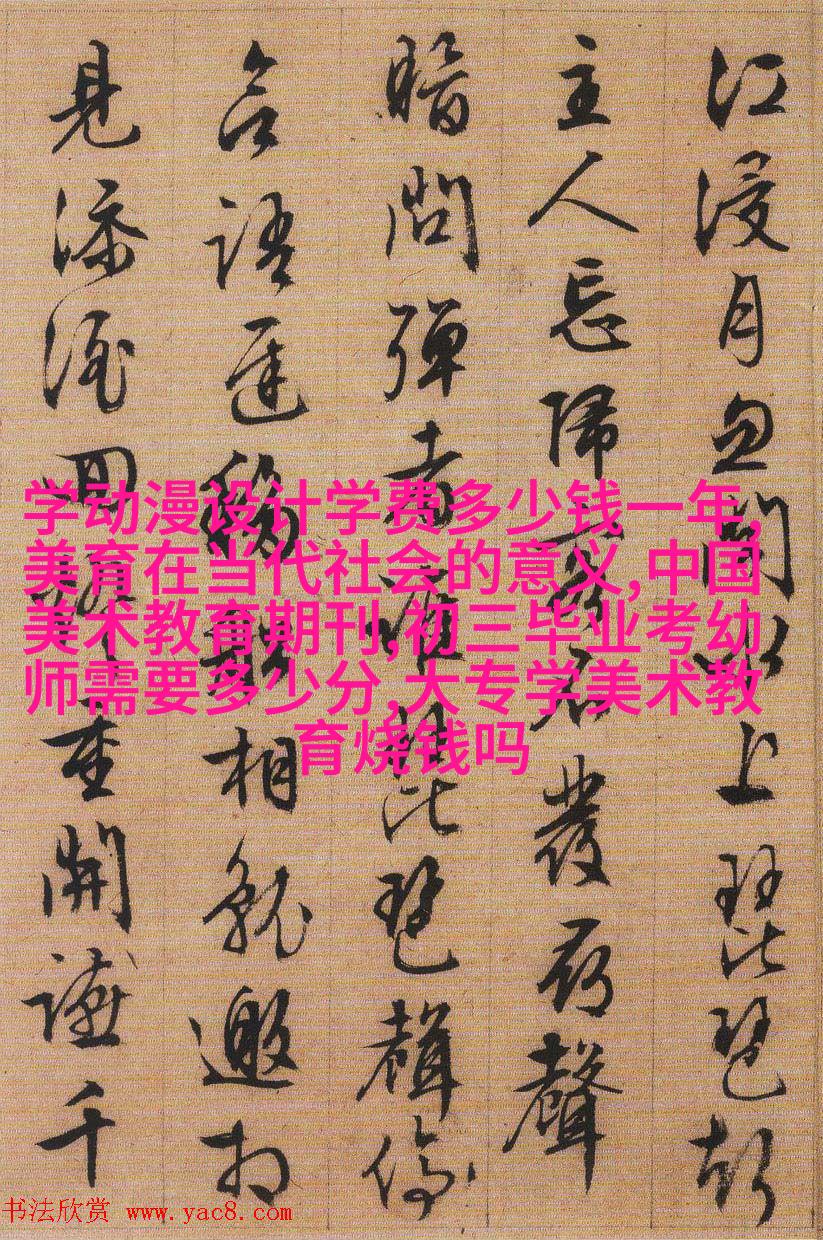 江浸月忽聞水上琵琶聲
主人忘歸客不發尋聲
暗問彈者誰琵琶聲停
欲語遲移船相就邀相
見添酒回燈重開讌千
学动漫设计学费多少钱一年,
美育在当代社会的意义,中国
美术教育期刊,初三毕业考幼
师需要多少分,大专学美术教
育烧钱吗
书法欣赏 www.yac8.com